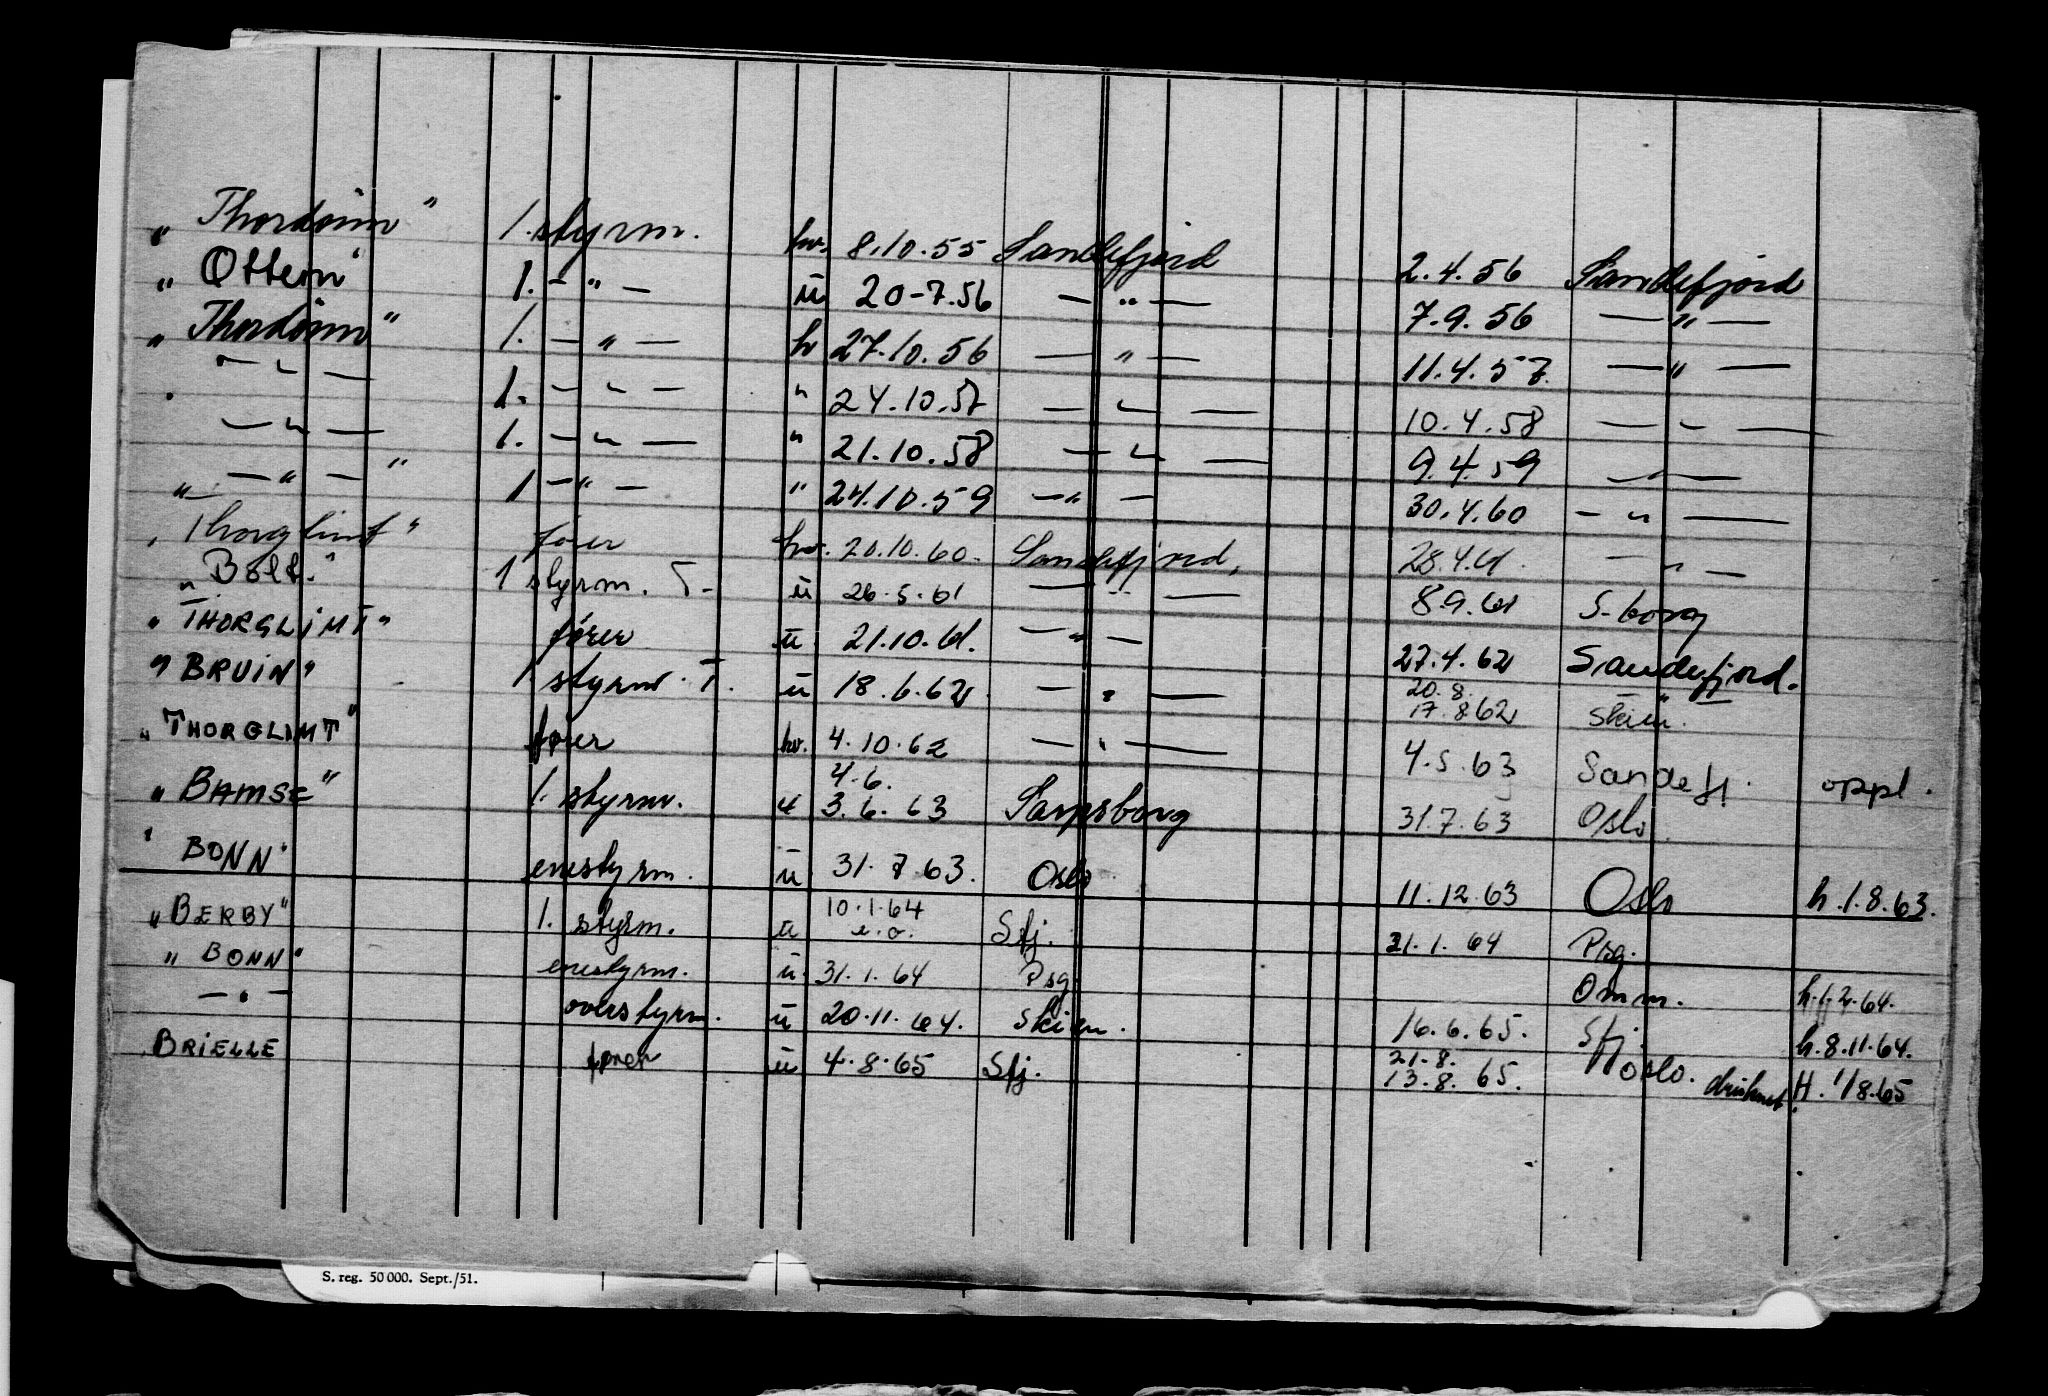 „ Thordønn " 1. styrm. hv. 8.10.55 Sandefjord 2.4.56 Sandefjord
„ Ottern " 1. — " — u 20-7.56 — " — 7.9.56 — " —
„ Thordønn " 1. — " — h 27.10.56 — " — 11.4.57. — " —
— " — 1. — " — " 24.10.57 — " — 10.4.58 — " —
— " — 1. — " — " 21.10.58 — " — 9.4.59 — " —
„ — " — " 1 — " — " 24.10.59 — " — 30.4.60 — " —
„ Thorglimt " fører hv. 20.10.60. Sandefjord, 28.4.61. — " —
„ Bolt." 1 styrm. T. u 26.5.61 — " — 8.9.61 S-borg
„ THORGLIMT " fører u 21.10.61. — " — 27.4.62 Sandefjord.
„ BRUIN " 1 styrm. T. u 18.6.62. — " — 20.8. 17.862 Skien.
„ THORGLIMT " fører hv. 4.10.62 — " — 4.5.63 Sandefj. oppl.
„ BAMSE " 1. styrm. u 4.6. 3.6.63 Sarpsborg 31.7.63 Oslo.
" BONN " enestyrm. u 31.7.63. Oslo 11.12.63 Oslo h.1.8.63.
„ BERBY " 1. styrm. u 10.1.64 e.o. Sfj. 31.1.64 Psg.
„ BONN " enestyrm. u. 31.1.64 Psg. Omm. h.1.2.64.
— " — overstyrm. u 20.11.64. Skien. 16.6.65. Sfj. h.8.11.64.
BRIELLE fører u 4.8.65 Sfj. 21.8. 13.8.65. Oslo. H. 1/8.65
S. reg. 50 000. Sept./51.